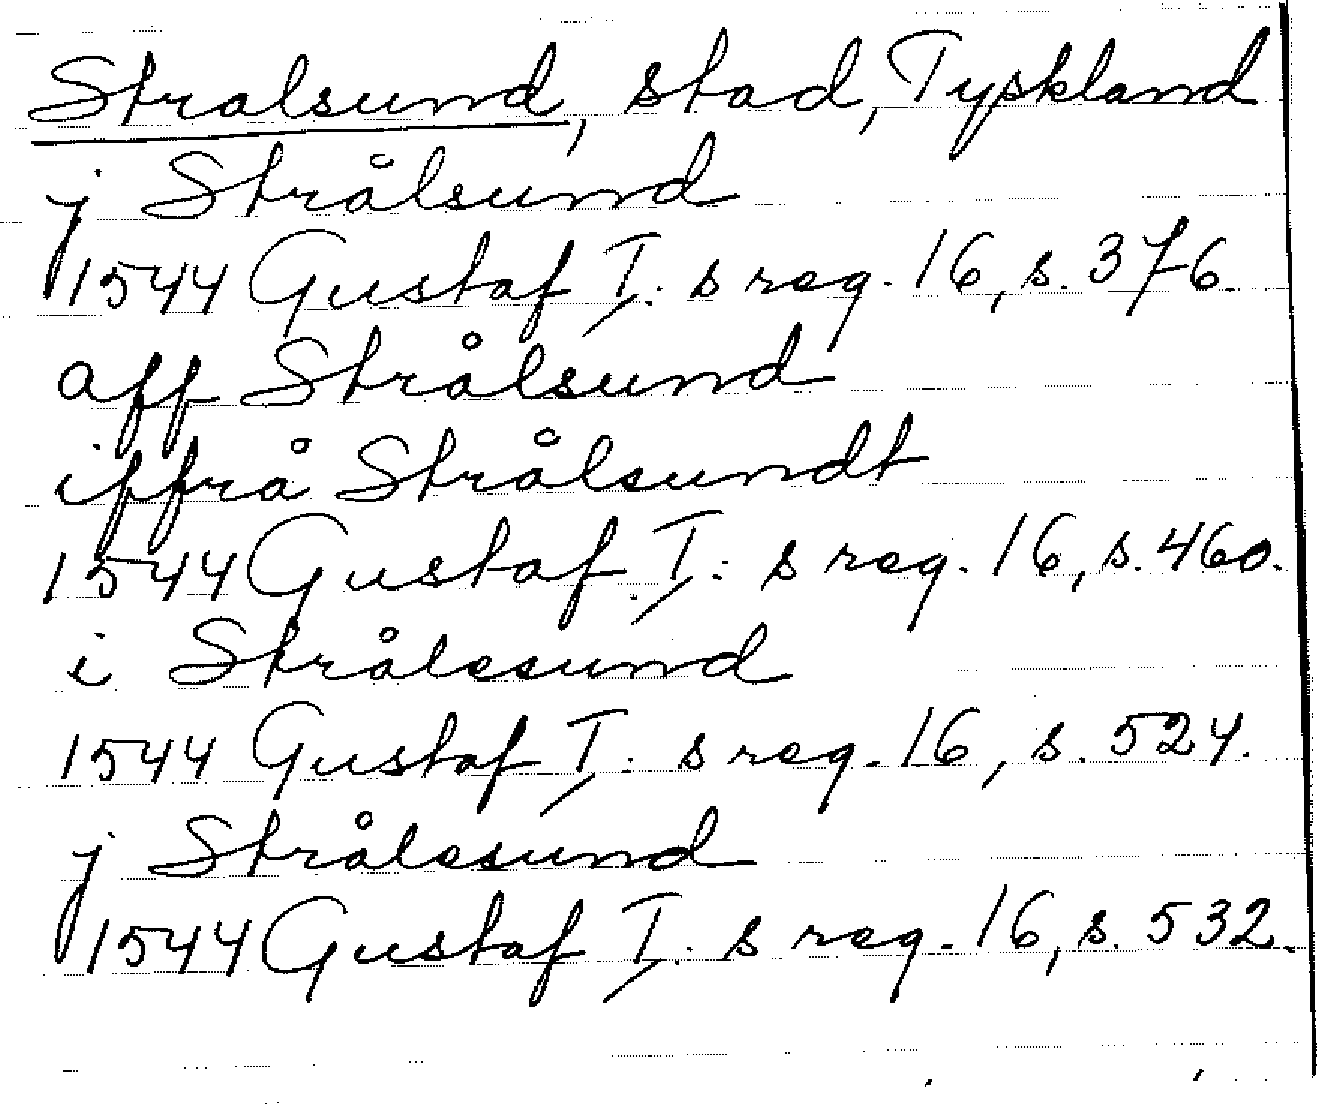 Stralsund, stad, Tyskland
j Strålsund
1544 Gustaf I:s reg. 16, s. 376.
aff Strålsund
iffrå Strålsundt
1544 Gustaf I:s reg. 16, s. 460.
i Strålesund
1544 Gustaf I:s reg. 16, s. 524.
j Strålesund
1544 Gustaf I:s reg. 16, s. 532.